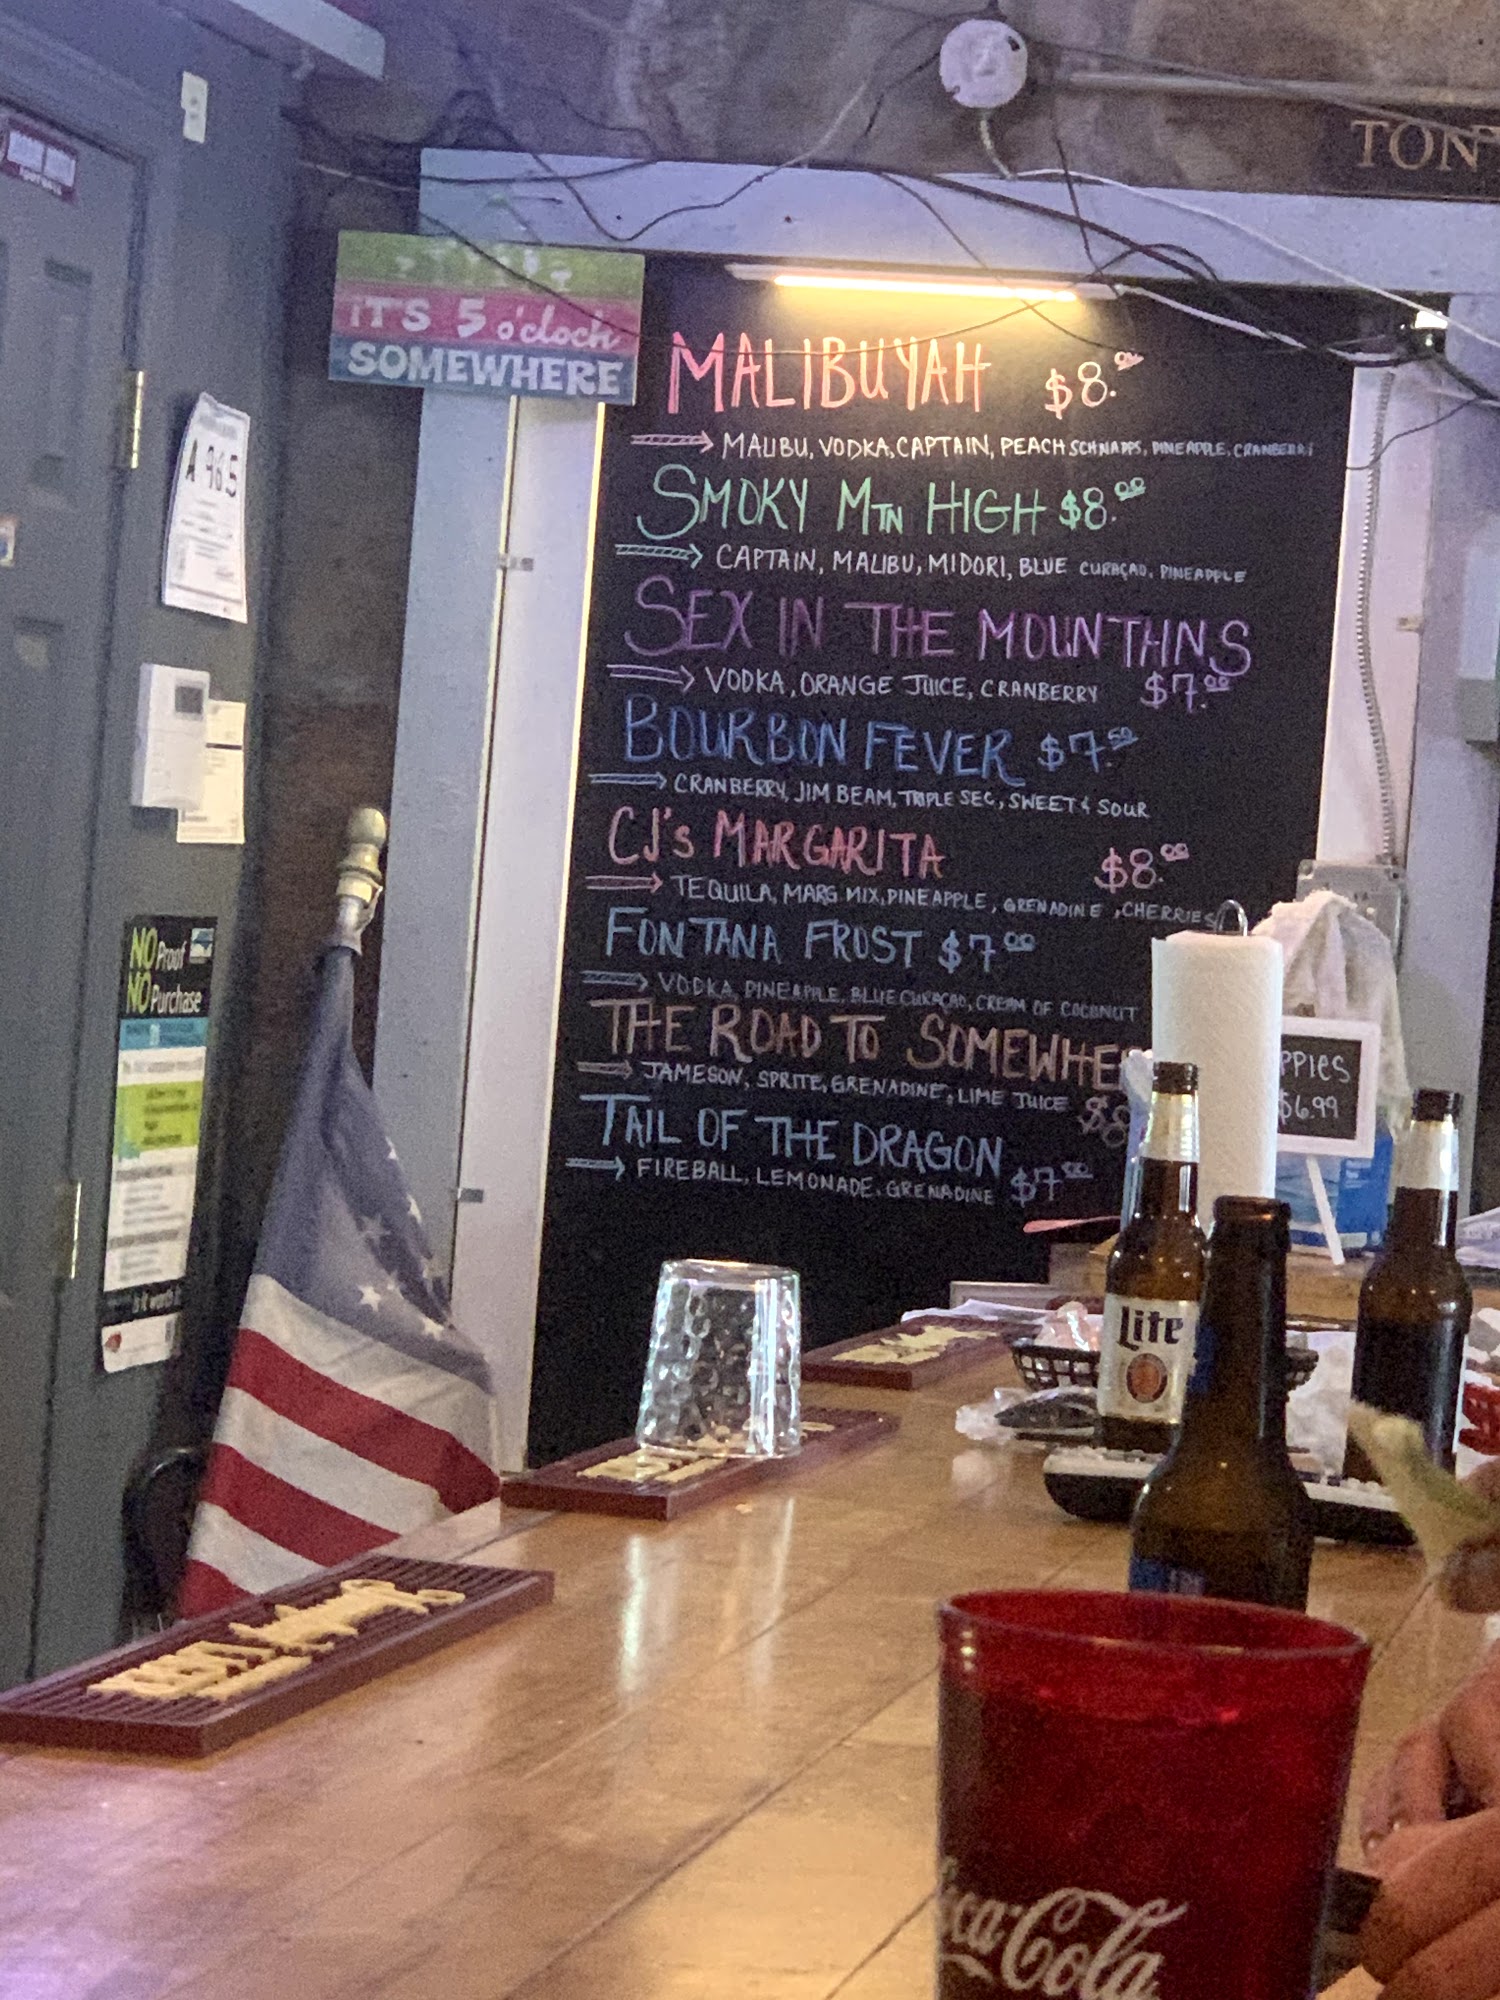 TON
IT'S 5 o'clock
SOMEWHERE
MALIBUYAH $8.00
MALIBU, VODKA, CAPTAIN, PEACH SCHNAPPS, PINEAPPLE, CRANBERRY
SMOKY MTN HIGH $8.00
CAPTAIN, MALIBU, MIDORI, BLUE CURAÇAO, PINEAPPLE
SEX IN THE MOUNTAINS
VODKA, ORANGE JUICE, CRANBERRY $7.00
BOURBON FEVER $7.50
CRANBERRY, JIM BEAM, TRIPLE SEC, SWEET & SOUR
CJ'S MARGARITA $8.00
TEQUILA, MARG MIX, PINEAPPLE, GRENADINE, CHERRIES
FONTANA FROST $7.00
VODKA, PINEAPPLE, BLUE CURAÇAO, CREAM OF COCONUT
THE ROAD TO SOMEWHE
JAMESON, SPRITE, GRENADINE, LIME JUICE $8
TAIL OF THE DRAGON
FIREBALL, LEMONADE, GRENADINE $7.00
A 96.5
NO Proof
NO Purchase
PPIES
$6.99
Lite
ca-Cola